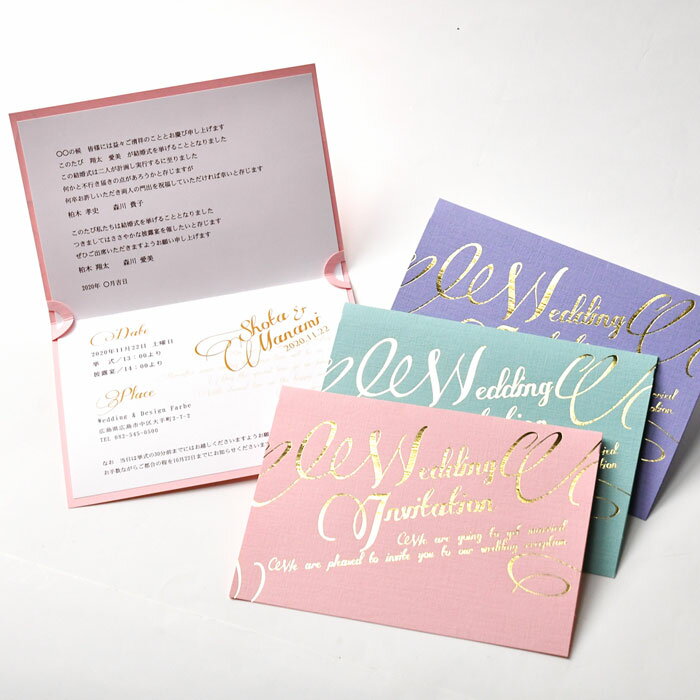 〇〇の候　皆様には益々ご清祥のこととお慶び申し上げます
このたび　翔太　愛美　が結婚式を挙げることとなりました
この結婚式は二人が計画し実行するに至りました
何かと不行き届きの点があろうかと存じますが
何卒お許しいただき両人の門出を祝福していただければ幸いと存じます
柏木 孝史　　森川 貴子
このたび私たちは結婚式を挙げることとなりました
つきましてはささやかな披露宴を催したいと存じます
ぜひご出席いただきますようお願い申し上げます
柏木 翔太　　森川 愛美
2020年 〇月吉日
Date
2020年11月22日 土曜日
挙 式／13:00より
披露宴／14:00より
Shota &
Manami
2020.11.22
Place
Wedding & Design Farbe
広島県広島市中区大手町3-7-2
TEL 082-545-0500
なお　当日は挙式の30分前までにはお越しくださいますようお願
お手数ながらご都合の程を10月22日までにお知らせくださいま
Wedding
Wedding
Wedding
Invitation
We are going to get married
We are pleased to invite you to our wedding reception